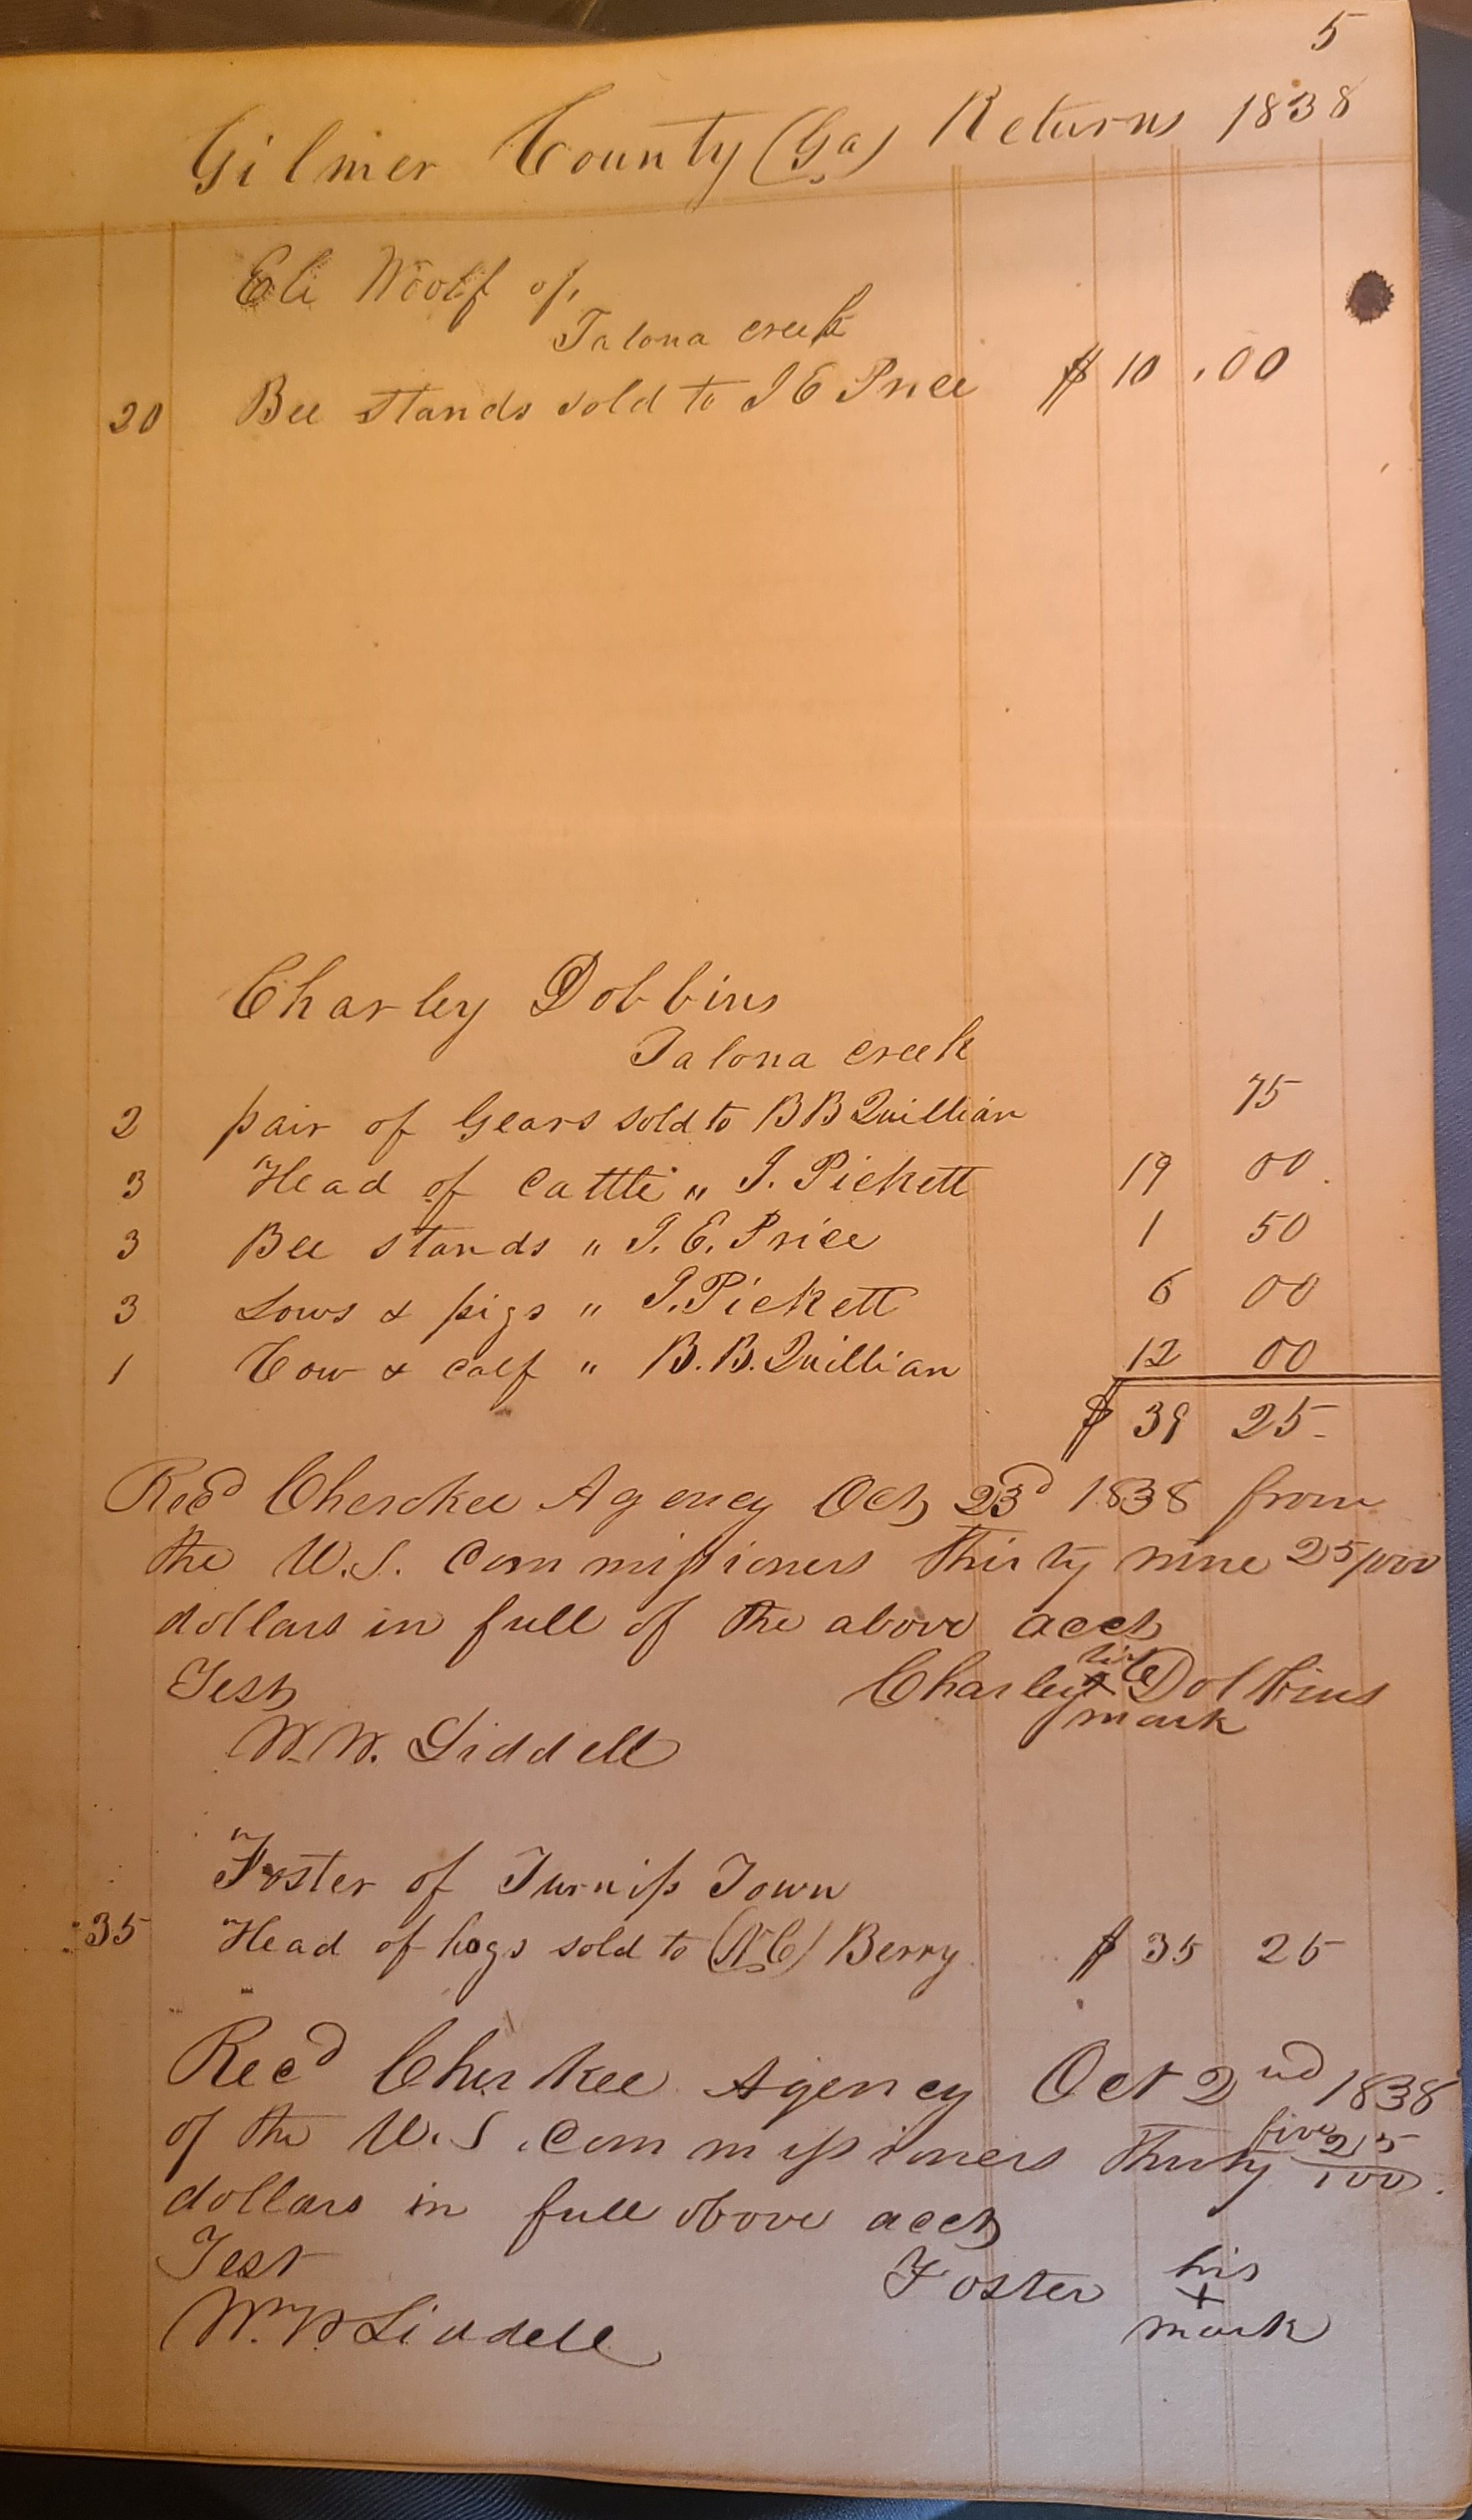 5
Gilmer County (Ga) Returns 1838
Eli Woolf of,
Talona creek
20 Bee stands sold to I E Price $ 10 .00
Charley Dobbins
Talona creek
2 pair of Gears sold to B B Quillian 75
3 Head of Cattle " I. Pickett 19 00.
3 Bee stands " I. E. Price 1 50
3 Sows & pigs " I. Pickett 6 00
1 Cow & calf " B. B. Quillian 12 00
$ 39 25
Recd Cherokee Agency Oct 23d 1838 from
the U.S. Commissioners Thirty nine 25/100
dollars in full of the above acct
Test Charley his x Dobbins
mark
W. W. Liddell
Foster of Turnip Town
35 Head of hogs sold to (N C) Berry $ 35 25
Recd Cherkee Agency Oct 2nd 1838
of the U.S. Commissioners Thirty five 25/100.
dollars in full above acct
Test Foster his
x
mark
W. W Liddell